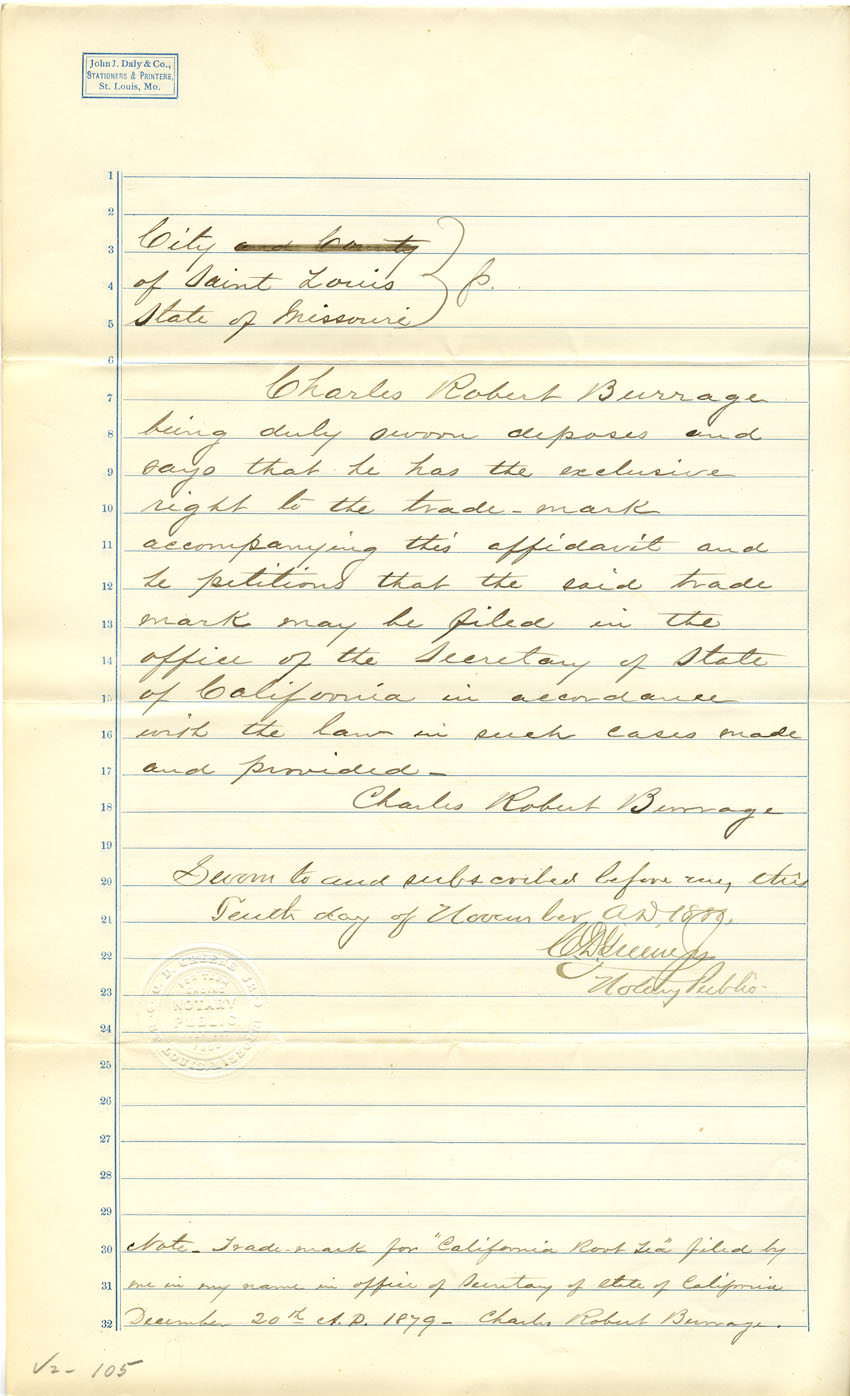 John J. Daly & Co.,
STATIONERS & PRINTERS,
St. Louis, Mo.
1
2
3 City and County
4 of Saint Louis
5 State of Missouri
6
7 Charles Robert Burrage
8 being duly sworn deposes and
9 says that he has the exclusive
10 right to the trade-mark
11 accompanying this affidavit and
12 he petitions that the said trade
13 mark may be filed in the
14 office of the Secretary of State
15 of California in accordance
16 with the law in such cases made
17 and provided—
18 Charles Robert Burrage
19
20 Sworn to and subscribed before me, this
21 Tenth day of November A D
22
23 Notary Public
24
C. D. GREENE JR.
NOTARY
PUBLIC
ST LOUIS MISSOURI
25
26
27
28
29
30 Note— Trade-mark for "California Root Tea" filed by
31 me in my name in office of Secretary of State of California
32 December 20th A.D. 1879— Charles Robert Burrage.
V2- 105